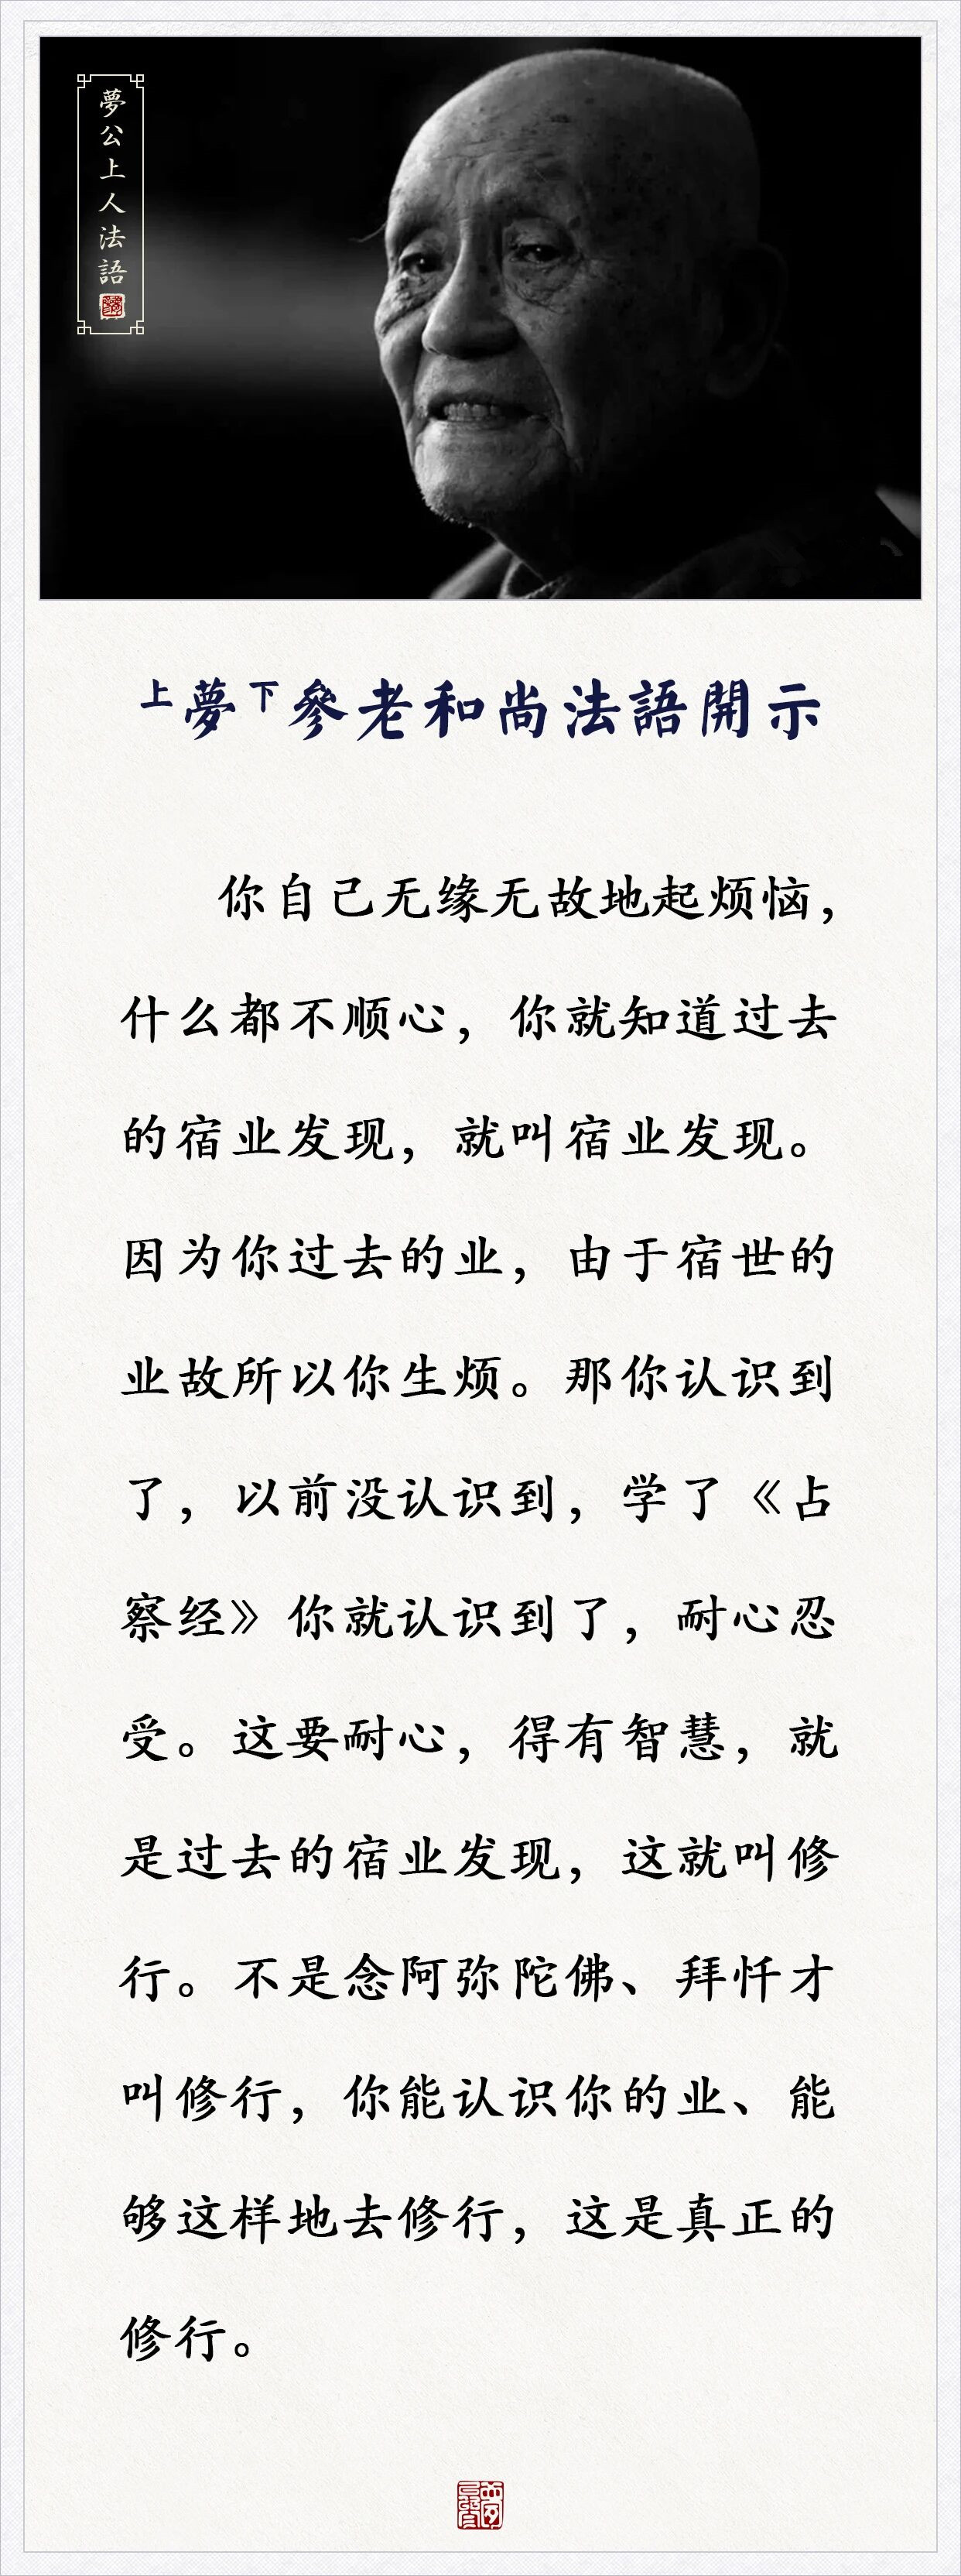 夢公上人法語
上夢下參老和尚法語開示
你自己无缘无故地起烦恼，
什么都不顺心，你就知道过去
的宿业发现，就叫宿业发现。
因为你过去的业，由于宿世的
业故所以你生烦。那你认识到
了，以前没认识到，学了《占
察经》你就认识到了，耐心忍
受。这要耐心，得有智慧，就
是过去的宿业发现，这就叫修
行。不是念阿弥陀佛、拜忏才
叫修行，你能认识你的业、能
够这样地去修行，这是真正的
修行。